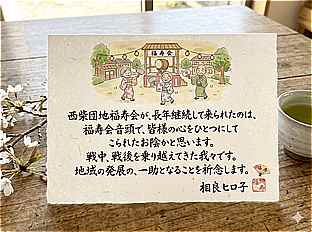 福寿会
西柴団地福寿会が、長年継続して来られたのは、
福寿会音頭で、皆様の心をひとつにして
こられたお陰かと思います。
戦中、戦後を乗り越えてきた我々です。
地域の発展の、一助となることを祈念します。
相良ヒロ子